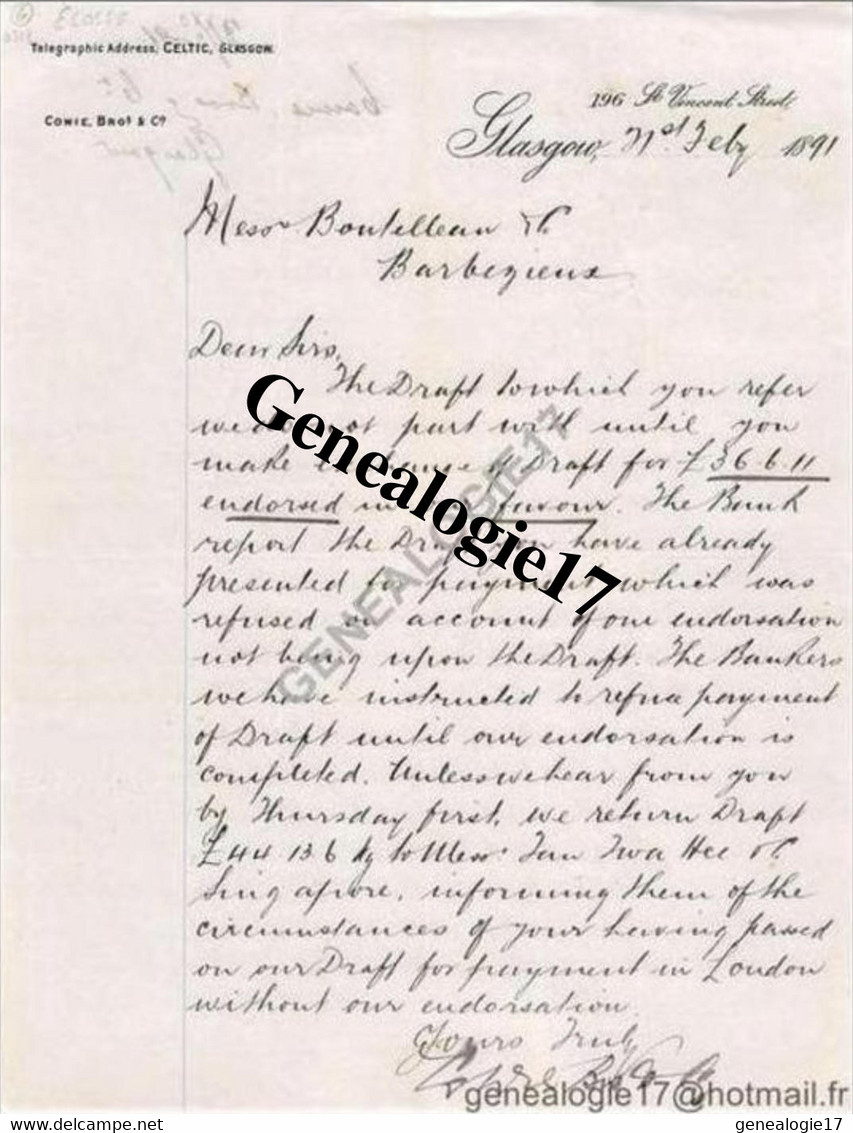 Telegraphic Address, CELTIC, GLASGOW.
COWIE, BROS & CO
196 St Vincent Street
Glasgow, 21st Feby 1891
Messrs Boutelleau & Co
Barbezieux
Dear Sirs,
The Draft to which you refer
we do not part with until you
make exchange of Draft for £36.6.11
endorsed in our favour. The Bank
report the Draft you have already
presented for payment which was
refused on account of our endorsation
not being upon the Draft. The Bankers
we have instructed to refuse payment
of Draft until our endorsation is
completed. Unless we hear from you
by Thursday first, we return Draft
£44 13.6 to Messrs Hee & Co
Singapore, informing them of the
circumstances of your having passed
on our Draft for payment in London
without our endorsation.
Yours Truly
Cowie Bros & Co
Genealogie17
GENEALOGIE17
genealogie17@hotmail.fr
www.delcampe.net
genealogie17